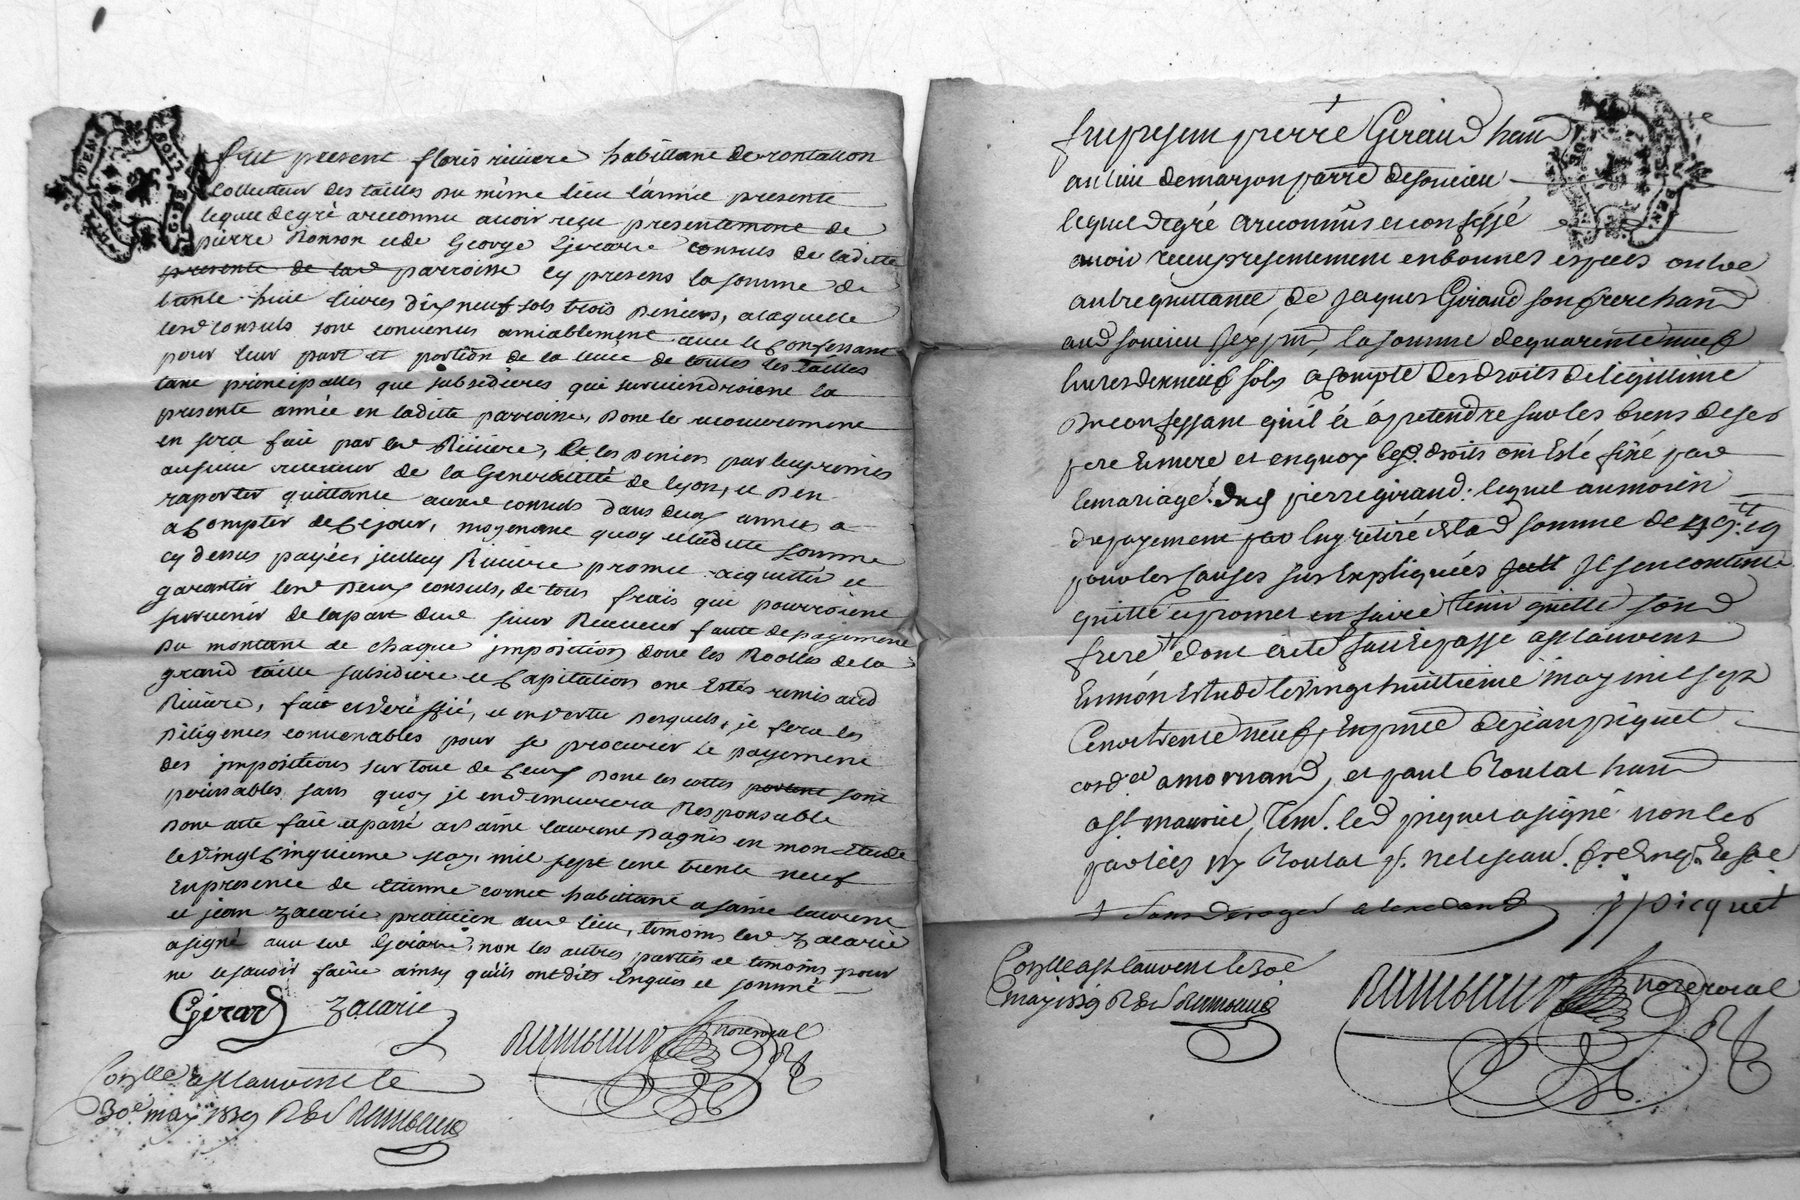 fut present floris riviere habittant de rontallon
collecteur des tailles du même lieu l'année presente
lequel de gré a reconnu avoir reçu presentement de
pierre Ronson et de George Gerard consuls de laditte
presente de lad parroisse cy presens la somme de
trente huit livres dix neuf sols trois deniers, a laquelle
lesd consuls sont convenus amiablement avec le Confessant
pour leur part et portion de la levée de toutes les tailles
tant principalles que subsidieres qui surviendroient la
presente année en laditte parroisse, dont le recouvrement
en sera fait par led Riviere, Et les deniers par luy remis
au sieur receveur de la Generalitté de Lyon, et d'en
raporter quittance auxd consuls dans deux années a
Compter de Ce jour, moyenant quoy et laditte somme
cy dessus payée, jcelluy Riviere promet aquitter et
garantir lesd deux consuls, de tous frais qui pourroient
survenir de la part dud sieur Receveur faute de payement
du montant de chaque jmposition dont les Roolles de la
grand taille subsidiere et Capitation ont Estés remis aud
Riviere, fait et verissié, et en vertu desquels, je fera les
diligences convenables pour se procurer le payement
des jmpositions sur tout de Ceux dont les cottes portent sont
perissables sans quoy je en demeurera Responsable
dont acte fait et passé a Saint laurent dagnis en mon Etude
le vingt Cinquieme may, mil sept cent trente neuf
En presence de Etienne cornet habittant a saint laurent
et jean Zacarie praticien aud lieu, temoins led Zacarie
a signé avec led Gerard, non les autres parties et temoins pour
ne le savoir faire ainsy qu'ils ont dits Enquis et sommé
Girard Zacarie
Conlle a St laurent le
30e may 1739 R
not royal
fut present pierre Giraud hant
au lieu de marjon parre de soucieu
lequel de gré a reconnu et confessé
avoir receu presentement en bonnes especes outre
autre quittance, de jaques Giraud son frere hant
aud soucieu la somme de quarente neuf
livres dix neuf sols a Compte des droits de legittime
du confessant qu'il a a pretendre sur les biens de ses
pere Et mere et en quoy lesd. droits ont Esté fixé par
le mariage dud pierre giraud. lequel au moien
du payement par luy retiré de lad somme de 49 lt. 19
pour les Causes sus Expliquées sest Il s'en contente
quitte et promet en faire tenir quitte sond
frere dont acte fait et passé a St laurent
En mon Estude le vingt huittieme may mil sept
Cent trente neuf, En pnce de jean piquet
cord.er a mornand, et paul Roulat hant
a St maurice, Tem. led piquet a signé non les
parties ny Roulat p. ne le scav. f.re Enq. Et so
j picquet
Conlle a St laurent le 30e
may 1739 R
not royal